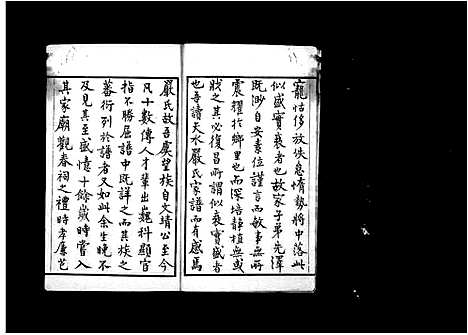 寵怙侈放佚怠惰勢將中落此
似盛實衰者也故家子弟先澤
既渺自安素位謹言而敏事無所
震耀於鄉里也而深培靜植無或
戕之其必復昌所謂似衰實盛者
也吾讀天水嚴氏家譜而有感焉
嚴氏故吾虞望族自文靖公至今
凡十數傳人才輩出巍科顯宦
指不勝屈譜中既詳之而其族之
蕃衍列於譜者又如此余生晚不
及見其至盛憶十餘歲時嘗入
其家廟觀春祠之禮時孝廉芭